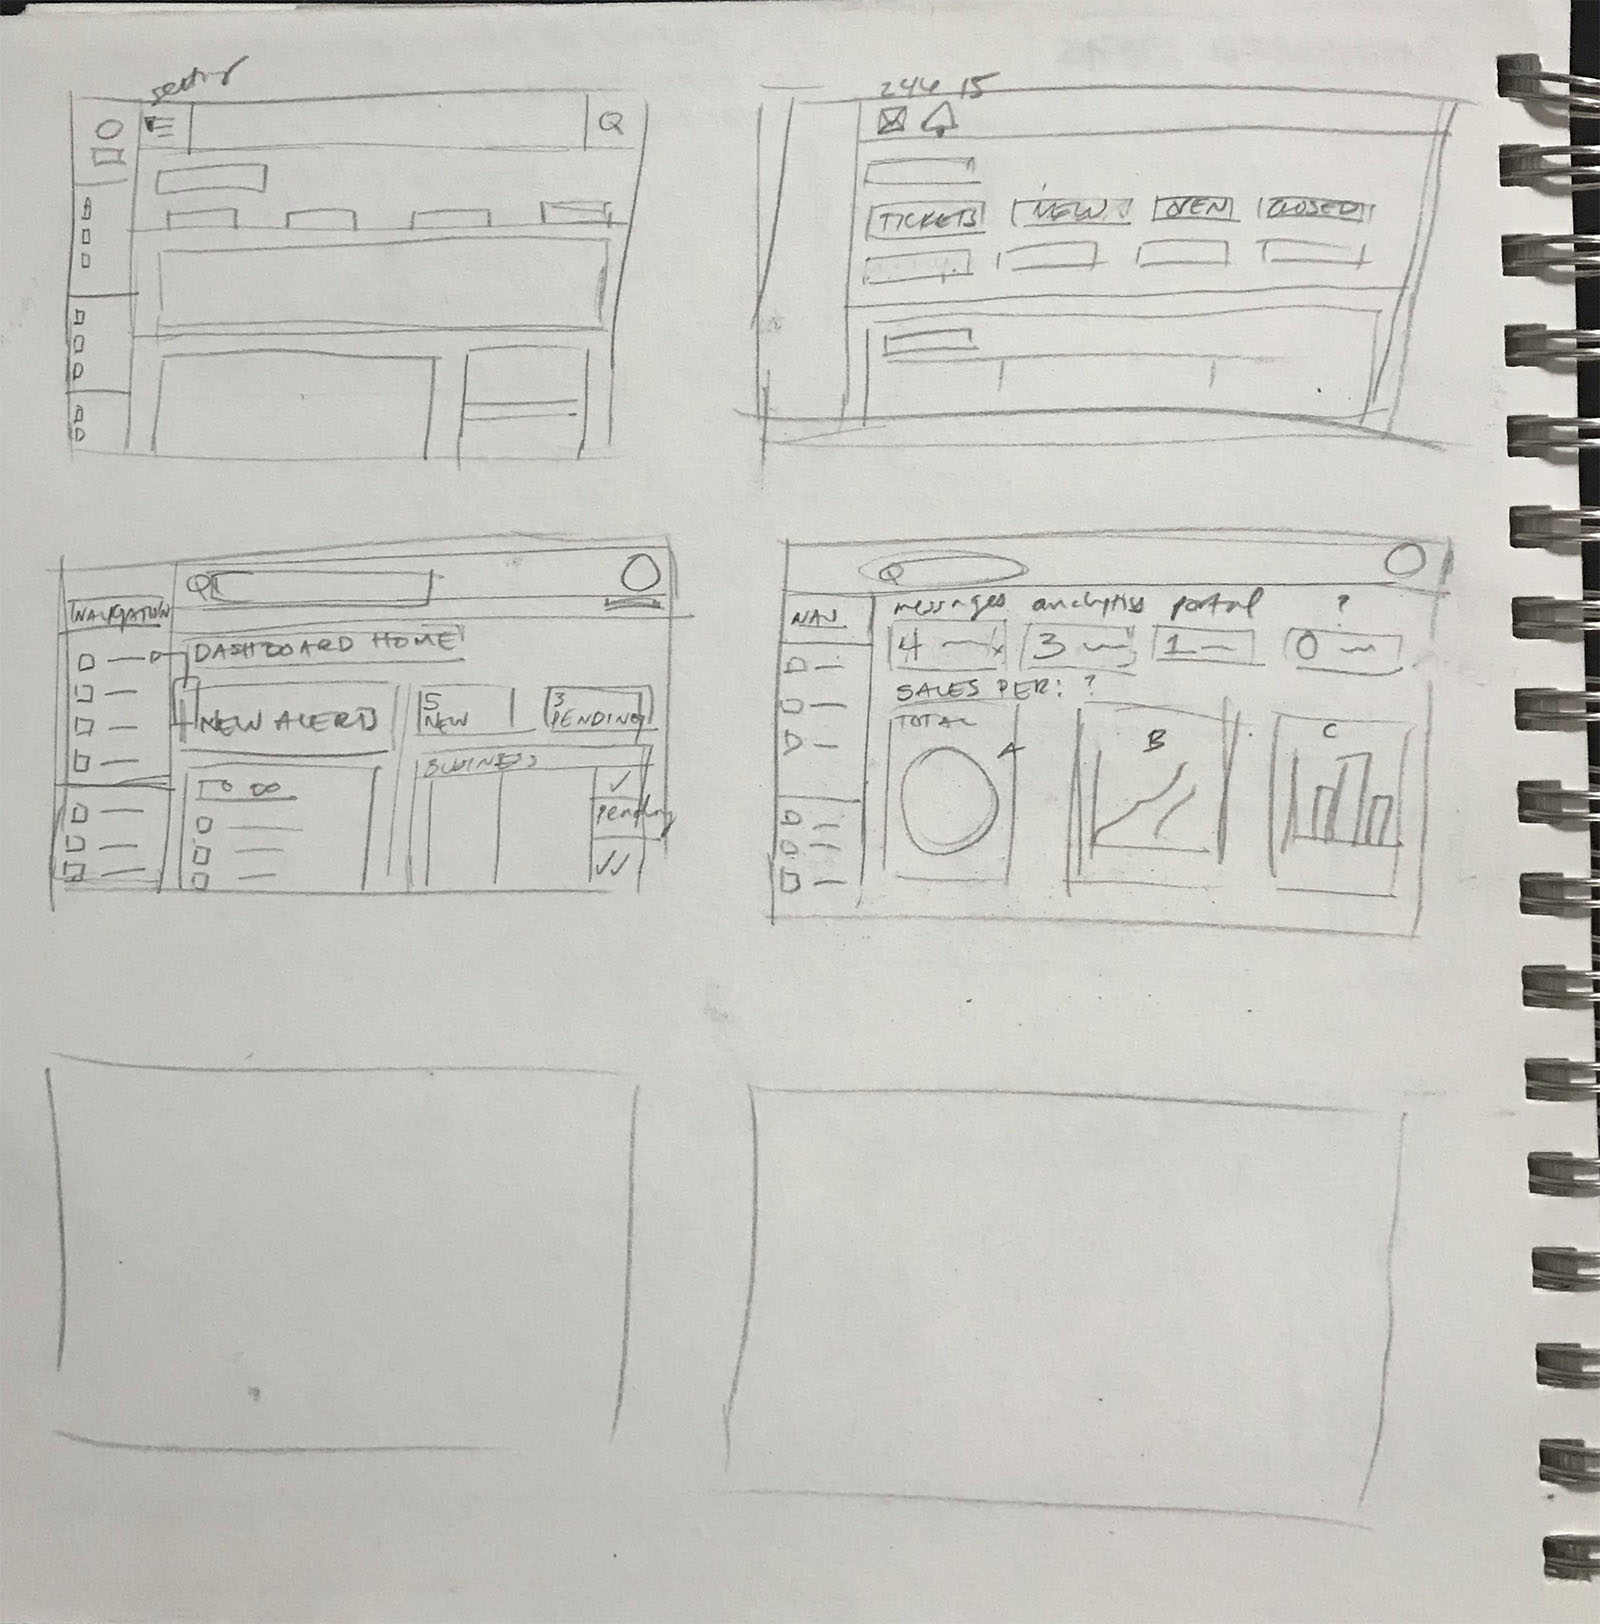 Q
15
TICKETS NEW OPEN CLOSED
NAVIGATION
Q
DASHBOARD HOME
NEW ALERTS
5
NEW
3
PENDING
BUSINESS
TO DO
pending
Q
NAV
messages analytics portal ?
4 3 1 0
SALES PER: ?
TOTAL
A B C